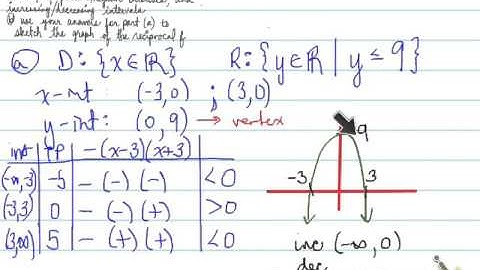 increasing/decreasing intervals
b) use your answer for part (a) to
sketch the graph of the reciprocal f
a) D: {x∈ℝ} R: {y∈ℝ | y ≤ 9}
x-int: (-3,0) ; (3,0)
y-int: (0, 9) → vertex
int TP -(x-3)(x+3)
(-∞,-3) -5 - (-) (-) <0
(-3,3) 0 - (-) (+) >0
(3,∞) 5 - (+) (+) <0
9
-3 3
inc (-∞, 0)
dec